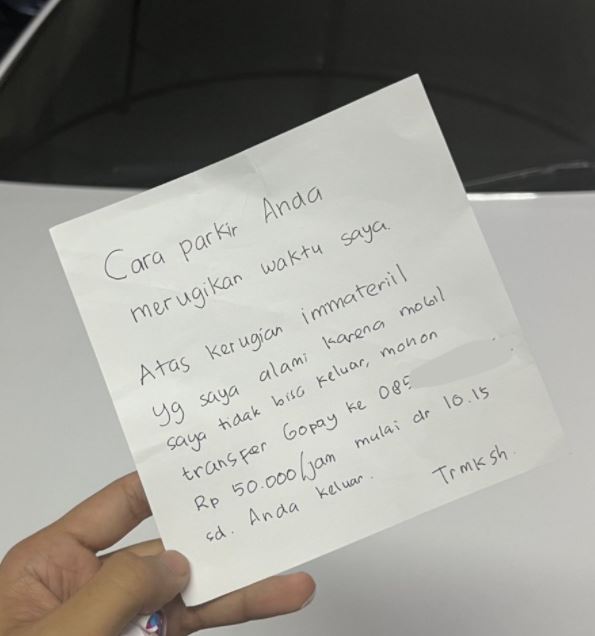 Cara parkir Anda
merugikan waktu saya.
Atas kerugian immateriil
yg saya alami karena mobil
saya tidak bisa keluar, mohon
transfer Gopay ke 085
Rp 50.000/jam mulai dr 10.15
sd. Anda keluar.
Trmksh.